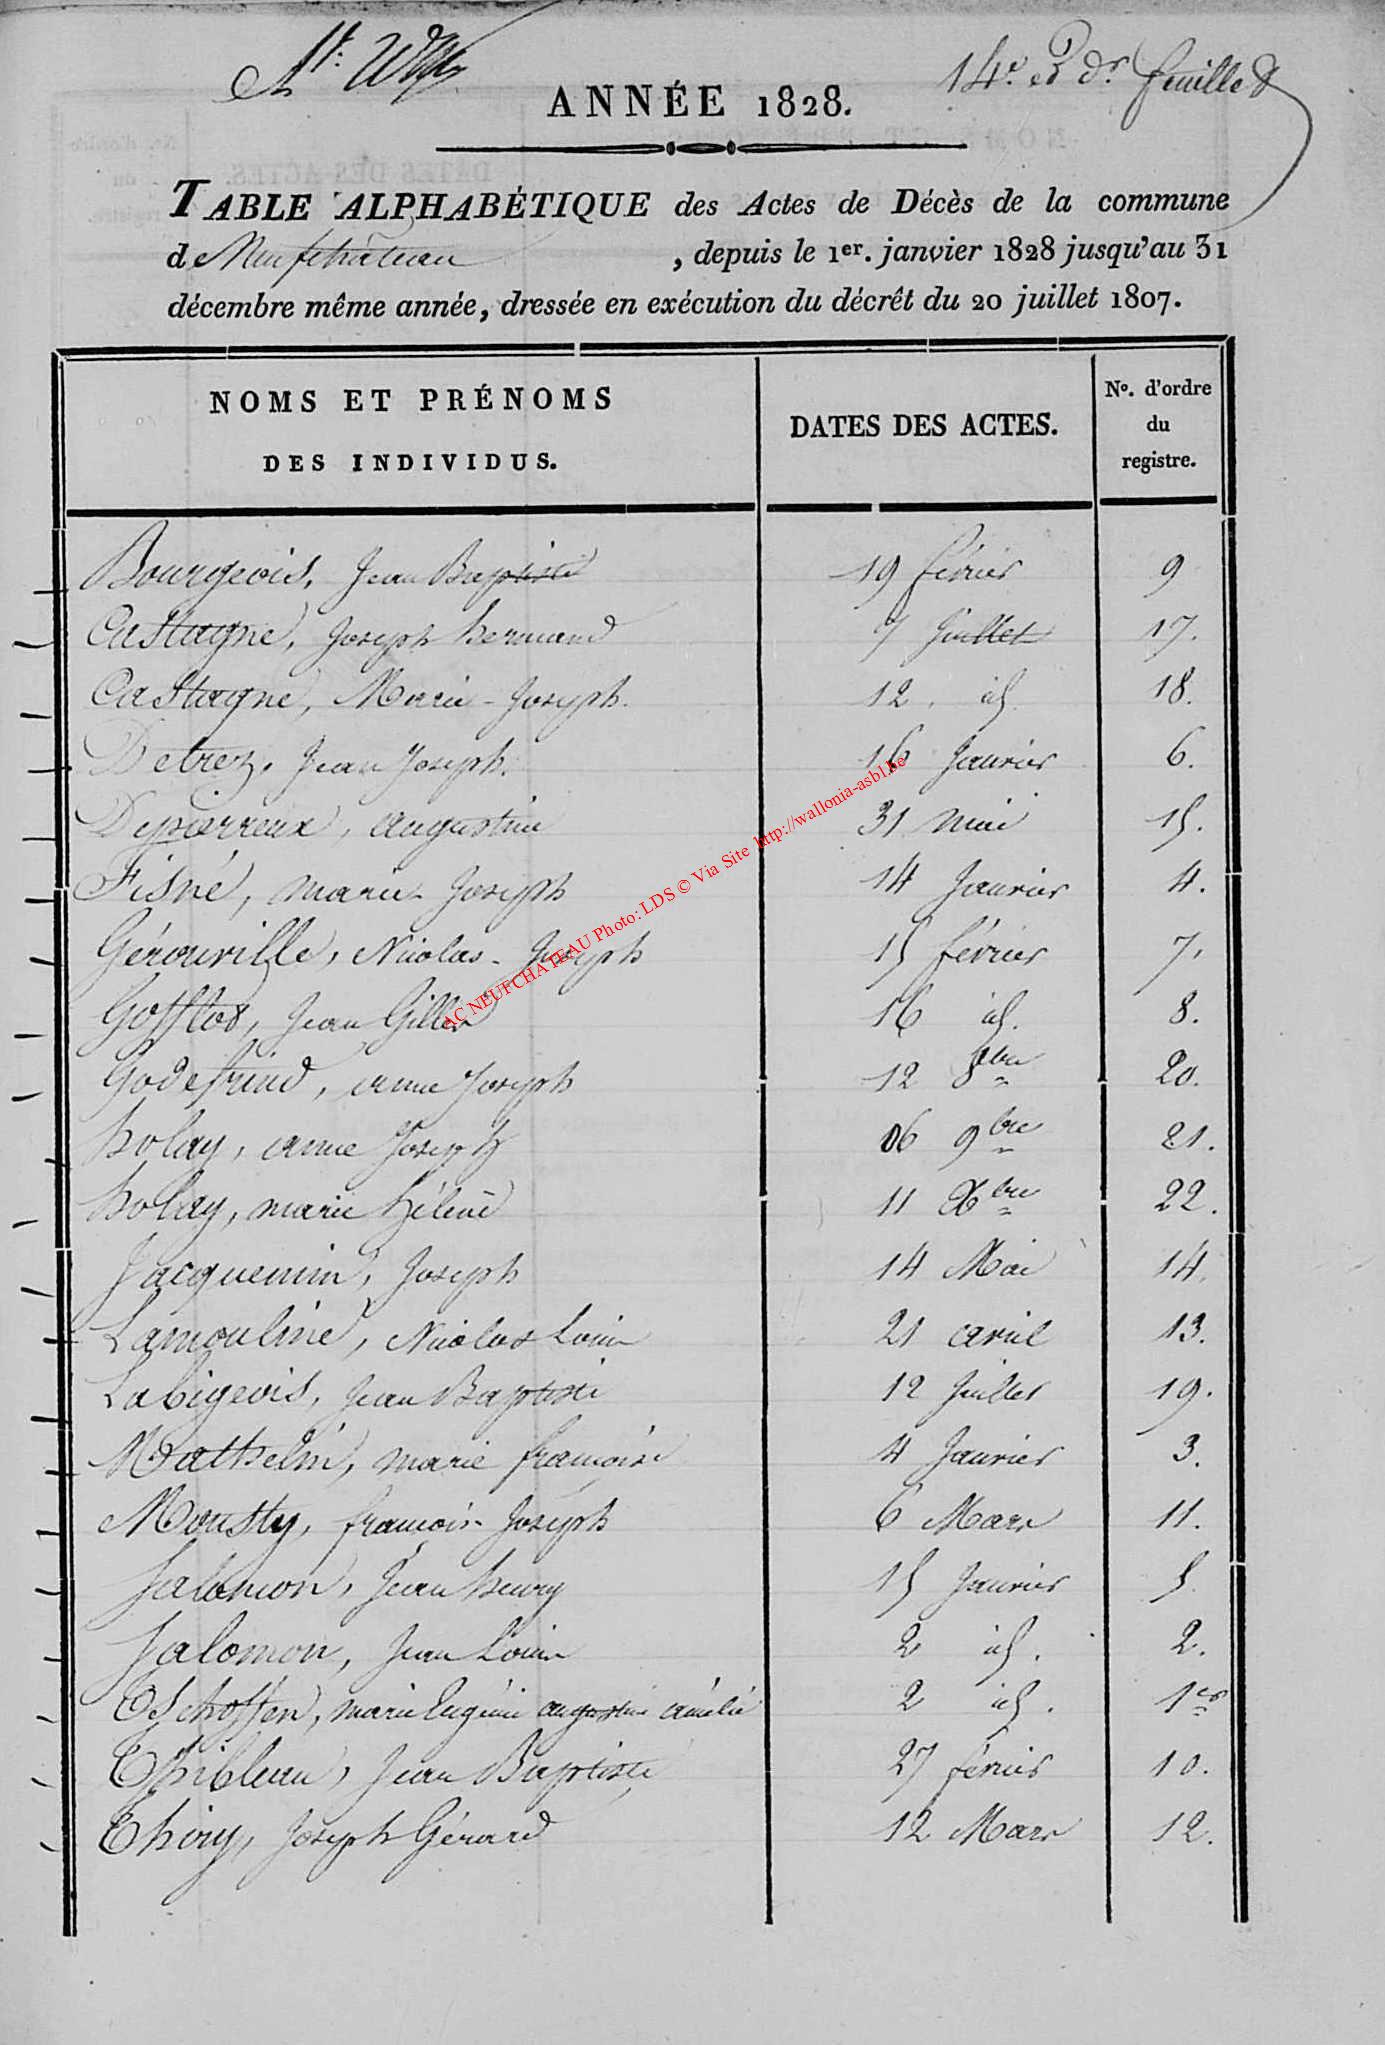 14e. et dr. feuillet
ANNÉE 1828.
TABLE ALPHABÉTIQUE des Actes de Décès de la commune
de Neufchâteau, depuis le 1er. janvier 1828 jusqu'au 31
décembre même année, dressée en exécution du décrêt du 20 juillet 1807.
NOMS ET PRÉNOMS DES INDIVIDUS. DATES DES ACTES. No. d'ordre du registre.
Bourgeois, Jean Baptiste 19 février 9
Castagne, Joseph hermand 7 Juillet 17.
Castagne, Marie-Joseph. 12. id. 18.
Detrez, Jean Joseph. 16 Janvier 6.
Depierreux, augustin 31 mai 15.
Fisné, marie-Joseph 14 Janvier 4.
Gérouville, Nicolas-Joseph 15 février 7.
Gofflot, Jean Gilles 16 id. 8.
Godefrind, anne Joseph 12 8bre 20.
holay, anne Joseph 06 9bre 21.
holay, marie hélène 11 Xbre 22.
Jacquemin, Joseph 14 Mai 14.
Lamouline, Nicolas Louis 21 avril 13.
Labigeois, Jean Baptiste 12 Juillet 19.
Mathelin, marie françoise 4 Janvier 3.
Mousty, françois-Joseph 6 Mars 11.
Salomon, Jean henry 15 Janvier 5
Salomon, Jean Louis 2 id. 2.
Tschoffen, marie Eugénie augustine amélie 2 id. 1er
Thibleau, Jean Baptiste 27 février 10.
Thiry, Joseph Gérard 12 Mars 12.
AC NEUFCHATEAU Photo: LDS © Via Site http://wallonia-asbl.be